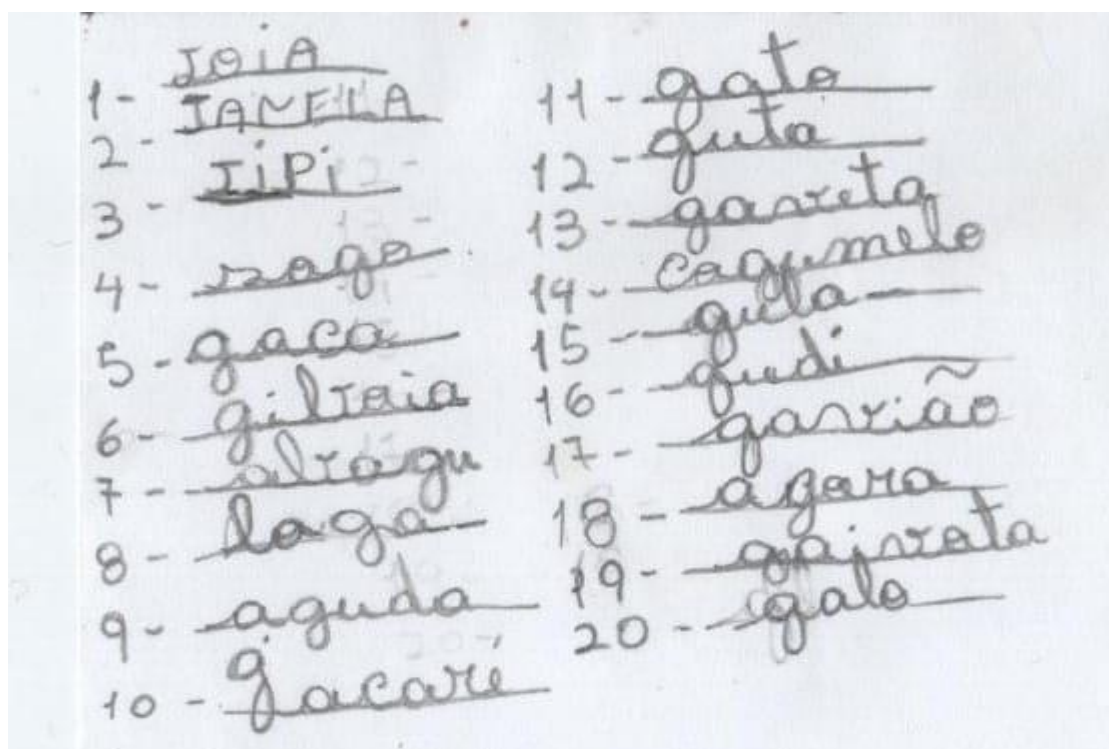 1- JOiA
2- JANELA
3- JiPi
4- rogo
5- gaca
6- giltoia
7- altagu
8- loga
9- aguda
10- gacaré
11- gato
12- guta
13- gaveta
14- cagumelo
15- gula
16- gudi
17- gavião
18- agora
19- gaivota
20- galo